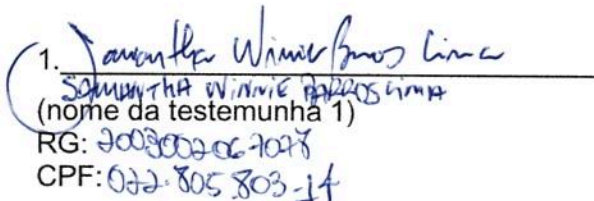 1. Samantha Winnie Barros Lima
SAMANTHA WINNIE BARROS LIMA
(nome da testemunha 1)
RG: 2003002067078
CPF: 022.805.803-14